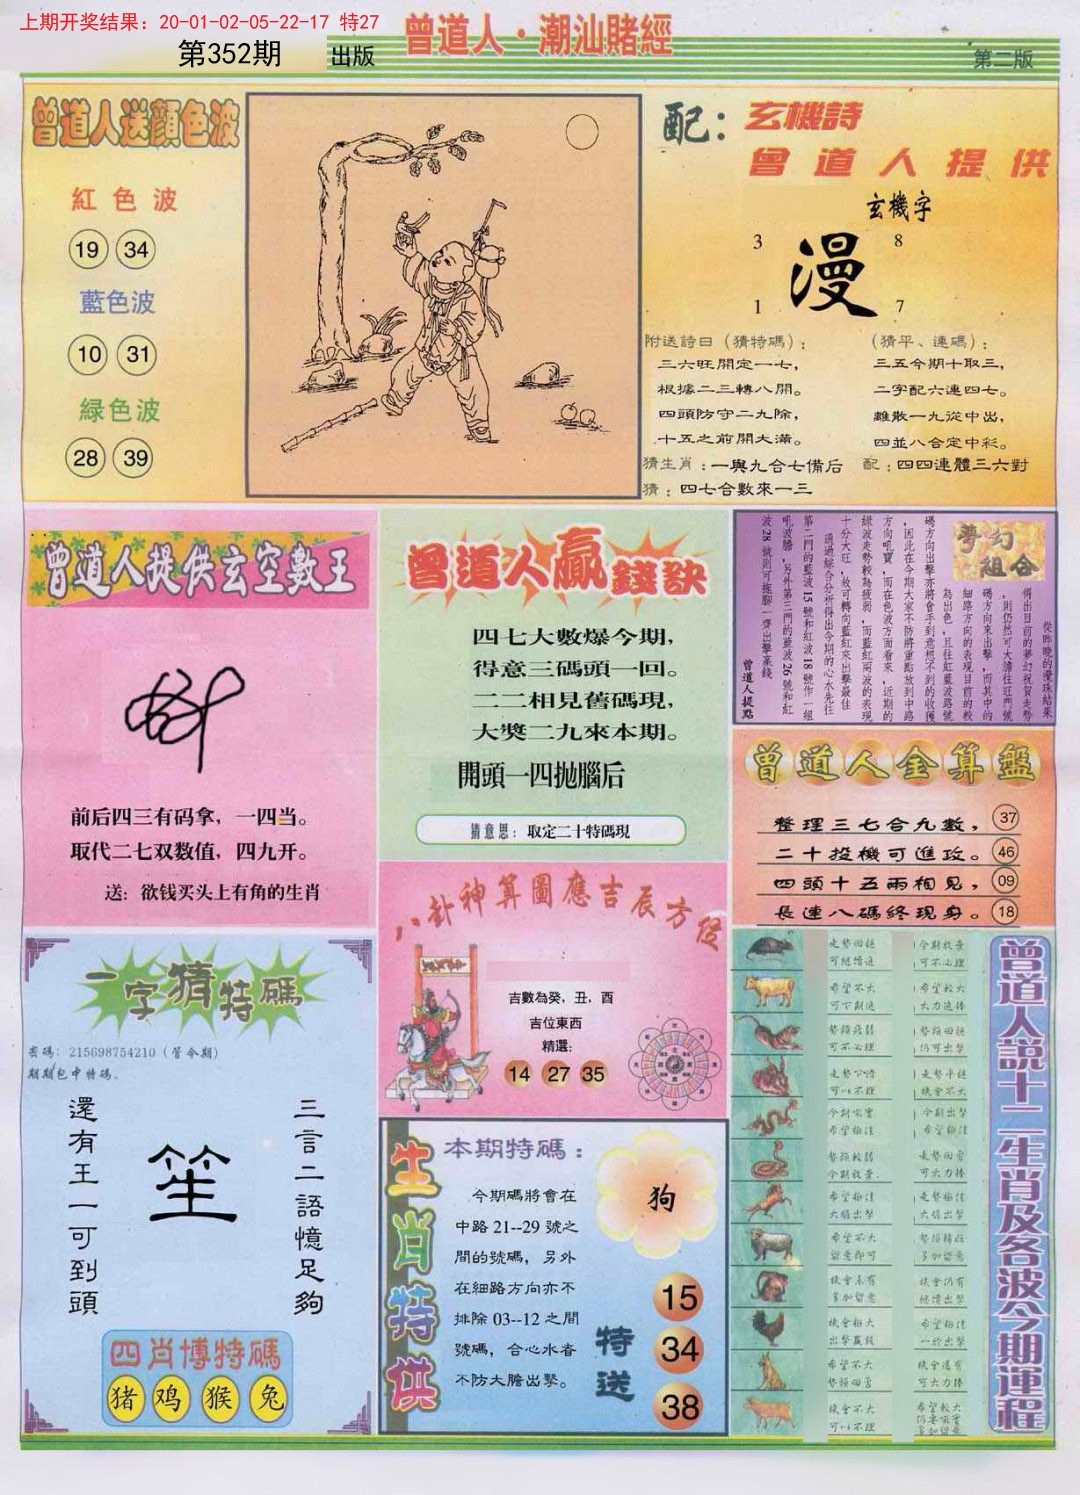 上期开奖结果：20-01-02-05-22-17 特27
第352期
出版
曾道人·潮汕賭經
第二版
曾道人送顔色波
紅色波
19 34
藍色波
10 31
緑色波
28 39
配：
玄機詩
曾道人提供
玄機字
3 8
漫
1 7
附送詩曰（猜特碼）：
三六旺開定一七，
根據二三轉八開。
四頭防守二九除，
十五之前開大滿。
猜生肖：一與九合七備后
猜：四七合數來一三
（猜平、連碼）：
三五今期十取三，
二字配六連四七。
離散一九從中出，
四並八合定中彩。
配：四四連體三六對
曾道人提供玄空數王
前后四三有码拿，一四当。
取代二七双数值，四九开。
送：欲钱买头上有角的生肖
曾道人贏錢訣
四七大數爆今期，
得意三碼頭一回。
二二相見舊碼現，
大獎二九來本期。
開頭一四拋腦后
猜意思：取定二十特碼現
夢幻組合
從昨晚的攪珠結果
得出目前的夢幻祝賀走勢
，則仍然可大膽往旺門號
碼方向來出擊，而其中的
細路方向的表現目前的較
為出色，且往紅藍波路號
碼方向出擊亦將會手到意想不到的收獲
，因此在今期大家不防將重點放到中路
方向吼寶，而在色波方面看來，近期的
綠波走勢較為疲弱，而藍紅兩波的表現
十分大旺，故可轉向藍紅來出擊最佳
通過綜合分析得出今期的心水先往
第二門的藍波15號和紅波18號作一組
吼波膽，另外第三門的藍波26號和紅
波28號則可拖腳一齊出擊赢錢
曾道人提點
曾道人金算盤
整理三七合九數， 37
二十投機可進攻。 46
四頭十五兩相見， 09
長連八碼終現身。 18
八卦神算圖應吉辰方位
吉數為癸，丑，酉
吉位東西
精選：
14 27 35
一字猜特碼
密碼：215698754210（管今期）
期期包中特碼、
三言二語憶足夠
笙
還有王一可到頭
四肖博特碼
猪 鸡 猴 兔
生肖特供
本期特碼：
今期碼將會在
中路 21--29 號之
間的號碼，另外
在細路方向亦不
排除 03--12 之間
號碼，合心水者
不防大膽出擊。
狗
特送
15
34
38
曾道人説十二生肖及各波今期運程